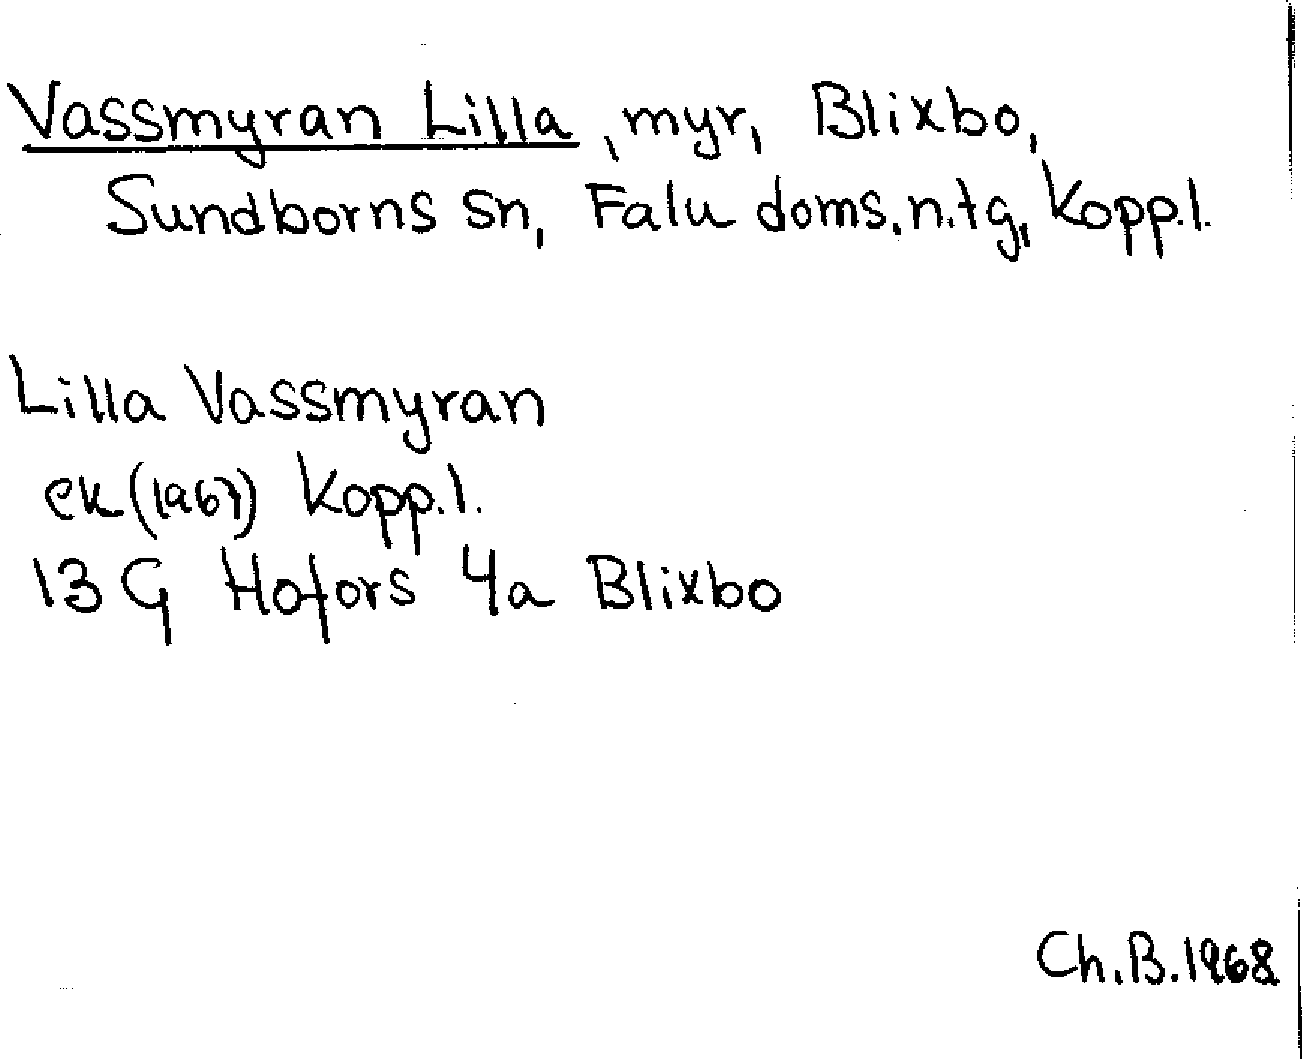 Vassmyran Lilla, myr, Blixbo,
Sundborns sn, Falu doms.n.tg, Kopp.l.
Lilla Vassmyran
ek (1967) Kopp.l.
13 G Hofors 4a Blixbo
Ch.B.1968